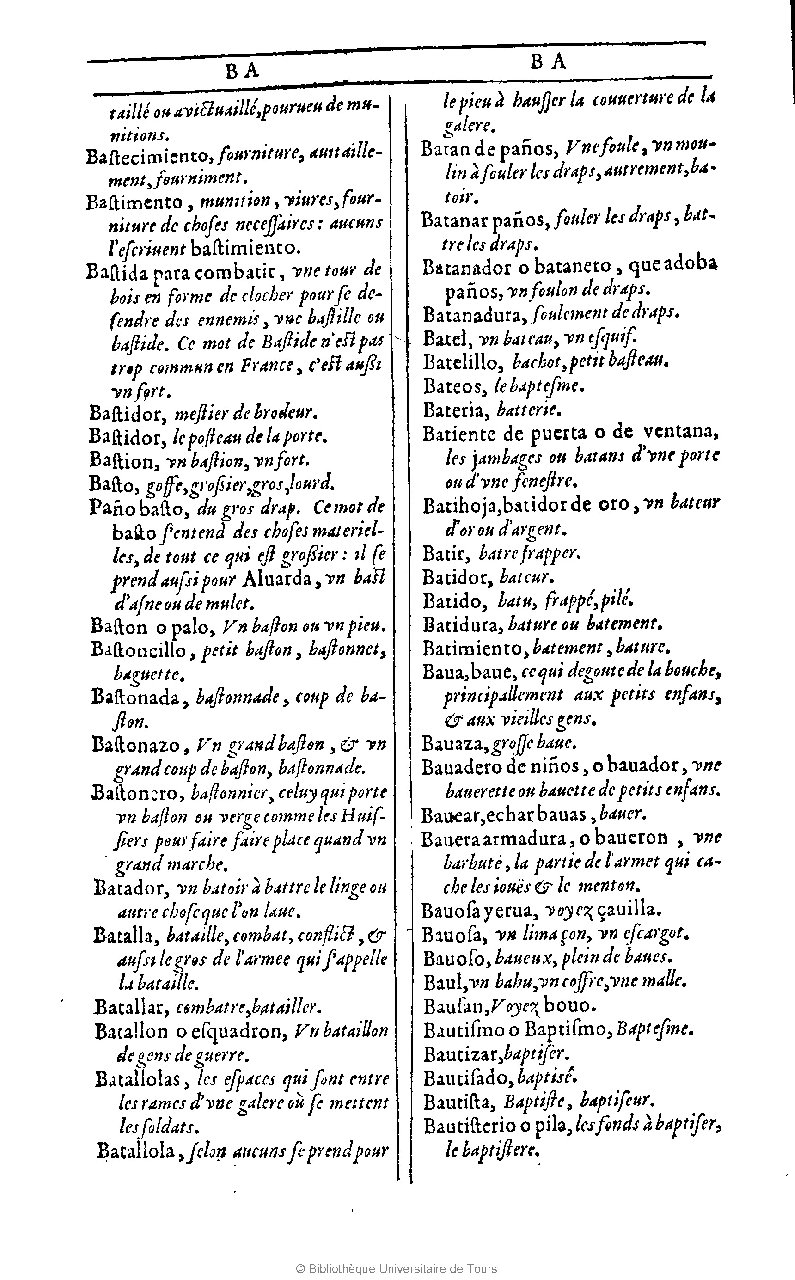 BA
taillé ou avictuaillé, pourueu de mu-
nitions.
Baſtecimiento, fourniture, auitaille-
ment, fourniment.
Baſtimento, munition, viures, four-
niture de choſes neceſſaires: aucuns
l'eſcriuent baſtimiento.
Baſtida para combatir, vne tour de
bois en forme de clocher pour ſe de-
fendre des ennemis, vne baſtille ou
baſtide. Ce mot de Baſtide n'eſt pas
trop commun en France, c'eſt auſſi
vn fort.
Baſtidor, meſtier de brodeur.
Baſtidor, le poſteau de la porte.
Baſtion, vn baſtion, vn fort.
Baſto, goffe, groſsier, gros, lourd.
Paño baſto, du gros drap. Ce mot de
baſto ſ'entend des choſes materiel-
les, de tout ce qui eſt groſsier: il ſe
prend auſsi pour Aluarda, vn baſt
d'aſne ou de mulet.
Baſton o palo, Vn baſton ou vn pieu.
Baſtoncillo, petit baſton, baſtonnet,
baguette.
Baſtonada, baſtonnade, coup de ba-
ſton.
Baſtonazo, Vn grand baſton, & vn
grand coup de baſton, baſtonnade.
Baſtonero, baſtonnier, celuy qui porte
vn baſton ou verge comme les Huiſ-
ſiers pour faire faire place quand vn
grand marche.
Batador, vn batoir à battre le linge ou
autre choſe que l'on laue.
Batalla, bataille, combat, conflict, &
auſsi le gros de l'armee qui ſ'appelle
la bataille.
Batallar, combatre, batailler.
Batallon o eſquadron, Vn bataillon
de gens de guerre.
Batallolas, les eſpaces qui ſont entre
les rames d'vne galere où ſe mettent
les ſoldats.
Batallola, ſelon aucuns ſe prend pour
BA
le pieu à hauſſer la couuerture de la
galere.
Batan de paños, Vne foule, vn mou-
lin à fouler les draps, autrement, ba-
toir.
Batanar paños, fouler les draps, bat-
tre les draps.
Batanador o batanero, que adoba
paños, vn foulon de draps.
Batanadura, foulement de draps.
Batel, vn bateau, vn eſquif.
Batelillo, bachot, petit baſteau.
Bateos, le bapteſme.
Bateria, batterie.
Batiente de puerta o de ventana,
les jambages ou batans d'vne porte
ou d'vne feneſtre.
Batihoja, batidor de oro, vn bateur
d'or ou d'argent.
Batir, batre frapper.
Batidor, bateur.
Batido, batu, frappé, pilé.
Batidura, bature ou batement.
Batimiento, batement, bature.
Baua, baue, ce qui degoute de la bouche,
principallement aux petits enfans,
& aux vieilles gens.
Bauaza, groſſe baue.
Bauadero de niños, o bauador, vne
bauerette ou bauette de petits enfans.
Bauear, echar bauas, bauer.
Bauera armadura, o baueron, vne
barbute, la partie de l'armet qui ca-
che les iouës & le menton.
Bauoſa yerua, voyez çauilla.
Bauoſa, vn limaçon, vn eſcargot.
Bauoſo, baueux, plein de baues.
Baul, vn bahu, vn coffre, vne malle.
Bauſan, Voyez bouo.
Bautiſmo o Baptiſmo, Bapteſme.
Bautizar, baptiſer.
Bautiſado, baptisé.
Bautiſta, Baptiſte, baptiſeur.
Bautiſterio o pila, les fonds à baptiſer,
le baptiſtere.
© Bibliothèque Universitaire de Tours